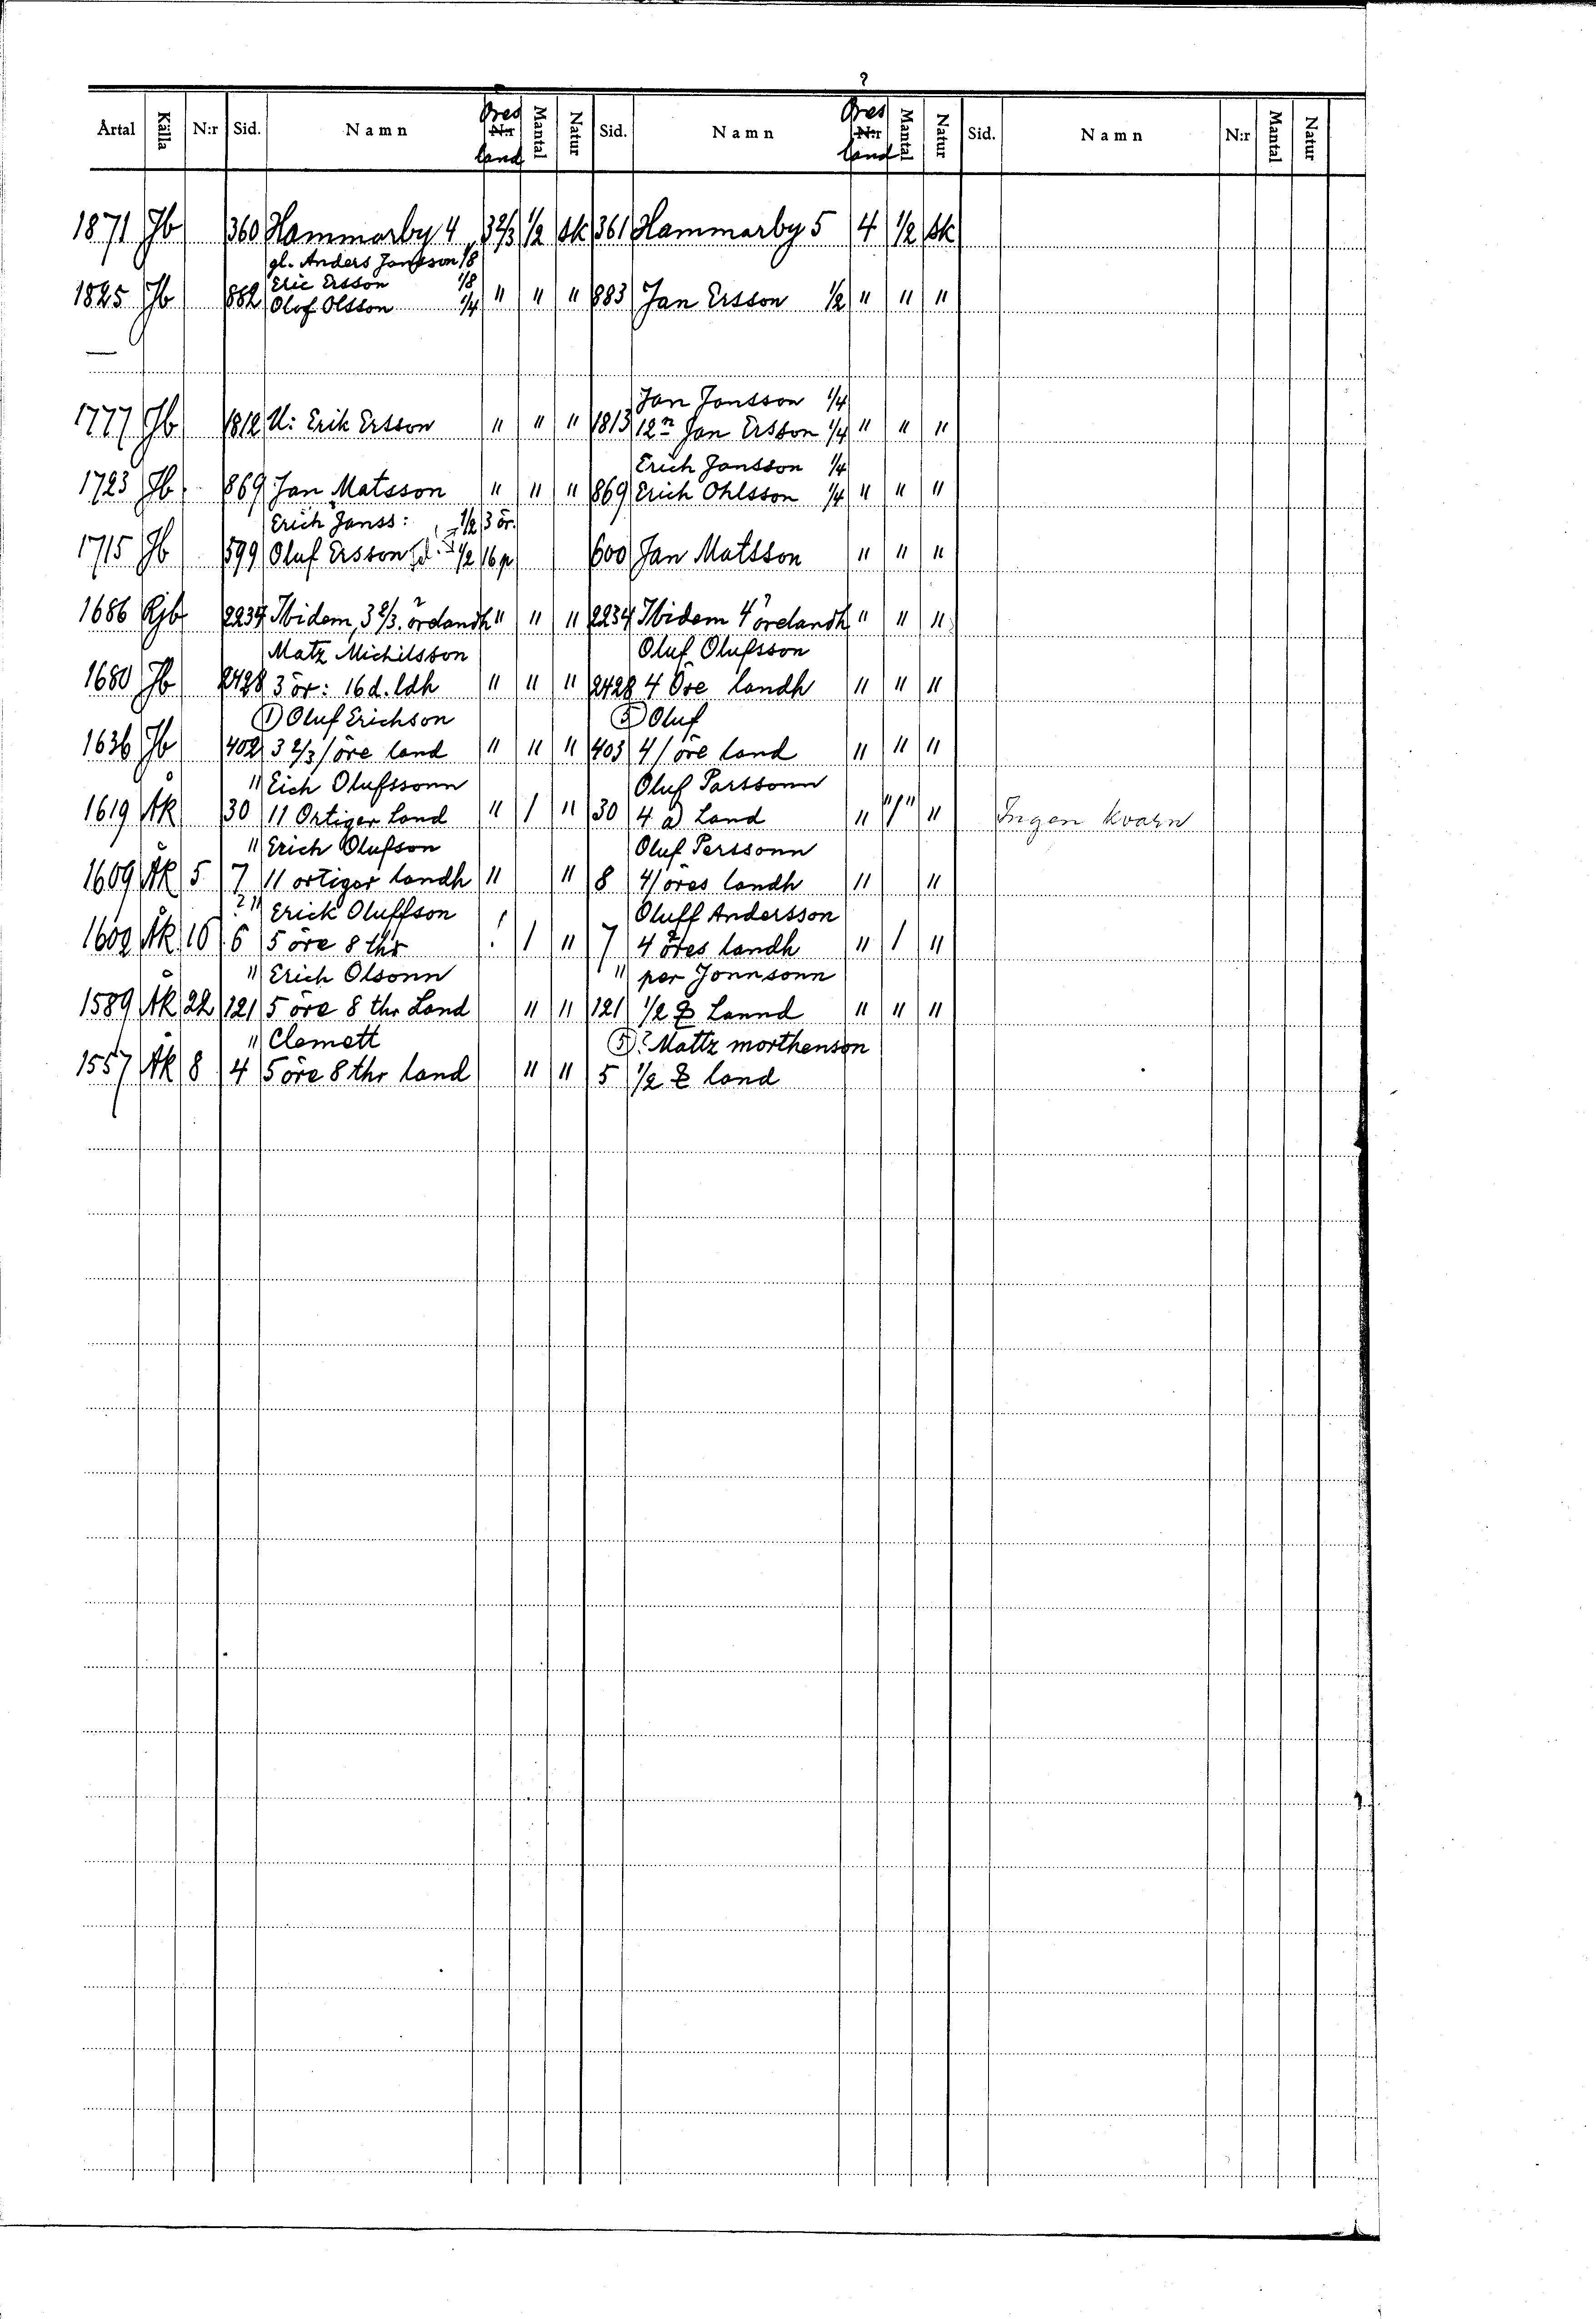 Öres Öres
Årtal Källa N:r Sid. Namn N:r Mantal Natur Sid. Namn N:r Mantal Natur Sid. Namn N:r Mantal Natur
land land
1871 Jb 360 Hammarby 4 3 2/3 1/2 sk 361 Hammarby 5 4 1/2 sk
gl. Anders Jansson 1/8
Eric Ersson 1/8
1825 Jb 882 Olof Olsson 1/4 " " " 883 Jan Ersson 1/2 " " "
Jan Jansson 1/4
1777 Jb 1812 U: Erik Ersson " " " 1813 12n Jan Ersson 1/4 " " "
Erich Jansson 1/4
1723 Jb 869 Jan Matsson " " " 869 Erich Ohlsson 1/4 " " "
Erich Janss: 1/2 3 ör.
1715 Jb 599 Oluf Ersson 1/2 16 p 600 Jan Matsson " " "
1686 Rjb 2234 Ibidem, 3 2/3. örelandh " " " 2234 Ibidem 4 örelandh " " "
Matz Michilsson Oluf Olufsson
1680 Jb 2428 3 ör: 16 d. ldh " " " 2428 4 Öre landh " " "
1) Oluf Erichson 5) Oluf
1636 Jb 402 3 2/3 / öre land " " " 403 4 / öre land " " "
" Eich Olufssonn Oluf Parssonn
1619 Åk 30 11 Ortiger Land " 1 " 30 4 a) Land " "1" " Ingen kvarn
" Erich Olufson Oluf Perssonn
1609 Åk 5 7 11 ortiger landh " " 8 4/öres landh " "
? " Erick Oluffson Oluff Andersson
1602 Åk 10 6 5 öre 8 thr ! 1 " 7 4 öres landh " 1 "
" Erich Olsonn " per Jonnsonn
1589 Åk 22 121 5 öre 8 thr Land " " 121 1/2 Lannd " " "
" Clemett 5)? Mattz morthenson
1557 Åk 8 4 5 öre 8 thr land " " 5 1/2 land